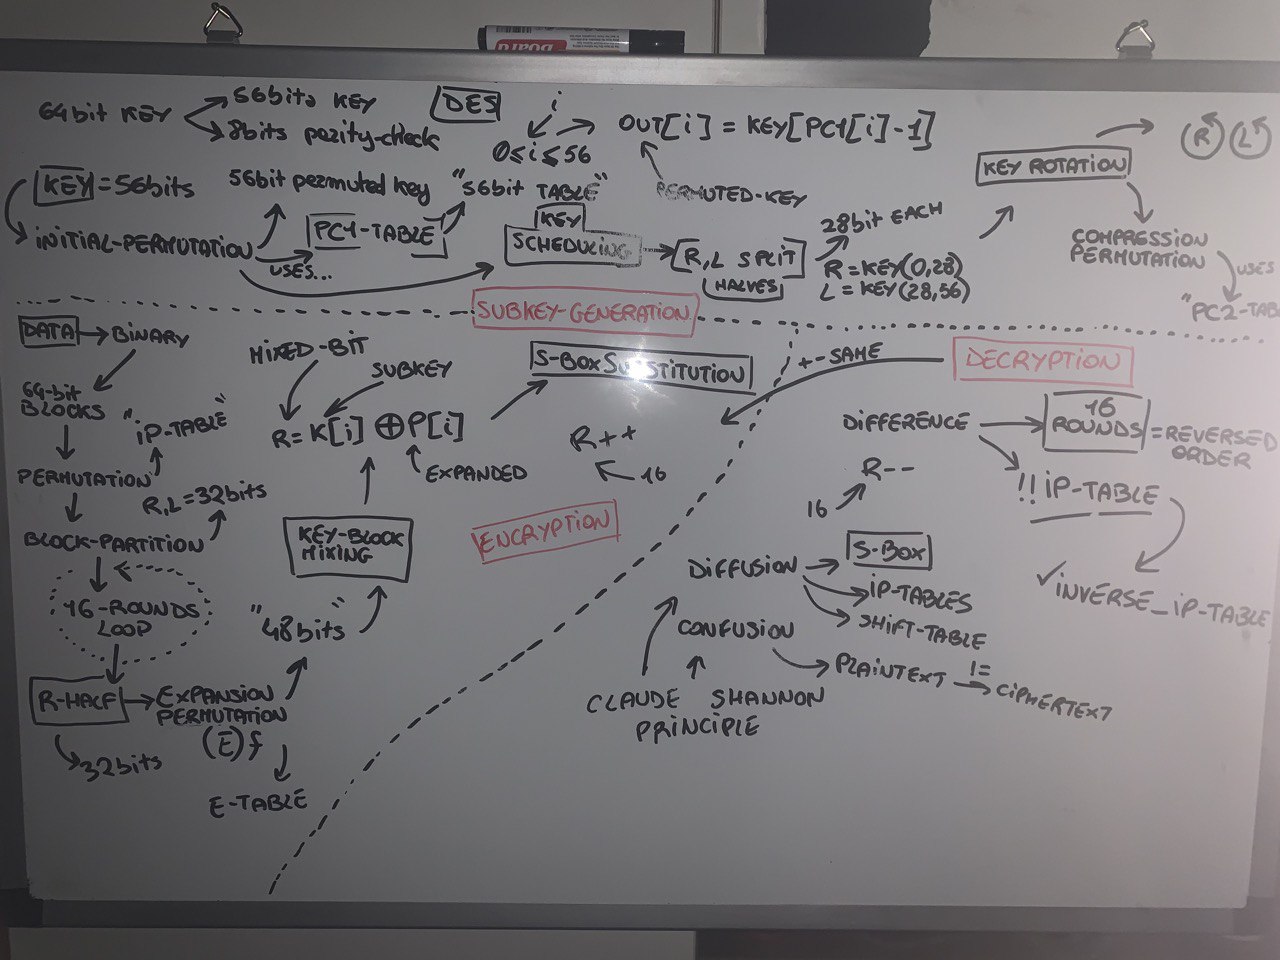 board
64bit KEY
56bits KEY
8bits parity-check
DES
i
0≤i≤56
OUT[i] = KEY[PC1[i]-1]
PERMUTED-KEY
KEY = 56bits
INITIAL-PERMUTATION
56bit permuted key
USES...
PC1-TABLE
"56bit TABLE"
KEY
SCHEDULING
R,L SPLIT
HALVES
28bit EACH
R = KEY(0,28)
L = KEY(28,56)
KEY ROTATION
R L
COMPRESSION
PERMUTATION
USES
"PC2-TAB
SUBKEY-GENERATION
DATA
BINARY
64-bit
BLOCKS
"IP-TABLE"
PERMUTATION
R,L = 32bits
BLOCK-PARTITION
16-ROUNDS
LOOP
R-HALF
32bits
EXPANSION
PERMUTATION
(E) f
E-TABLE
"48bits"
KEY-BLOCK
MIXING
MIXED-BIT
SUBKEY
R = K[i] ⊕ P[i]
EXPANDED
S-BOX SUBSTITUTION
R++
16
ENCRYPTION
+- SAME
DECRYPTION
DIFFERENCE
16
ROUNDS
= REVERSED
ORDER
R--
16
!! IP-TABLE
✓ INVERSE_IP-TABLE
DIFFUSION
S-BOX
IP-TABLES
SHIFT-TABLE
CONFUSION
PLAINTEXT
!=
CIPHERTEXT
CLAUDE SHANNON
PRINCIPLE